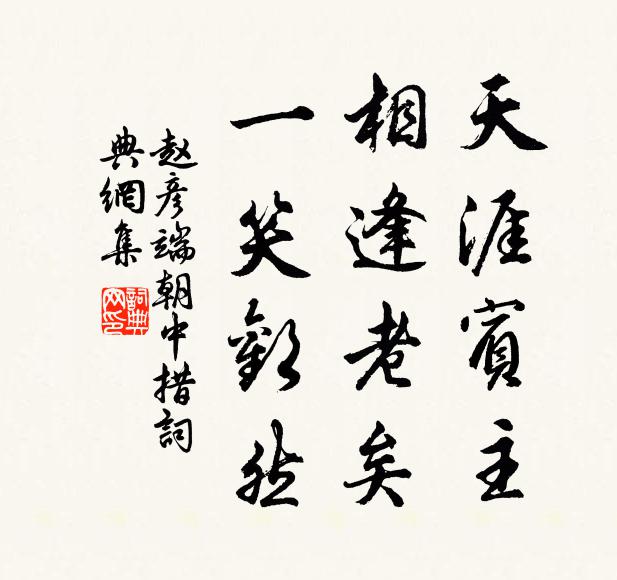 天涯賓主
相逢老矣
一笑歡然
赵彦端朝中措詞
典網集
詞典
网印